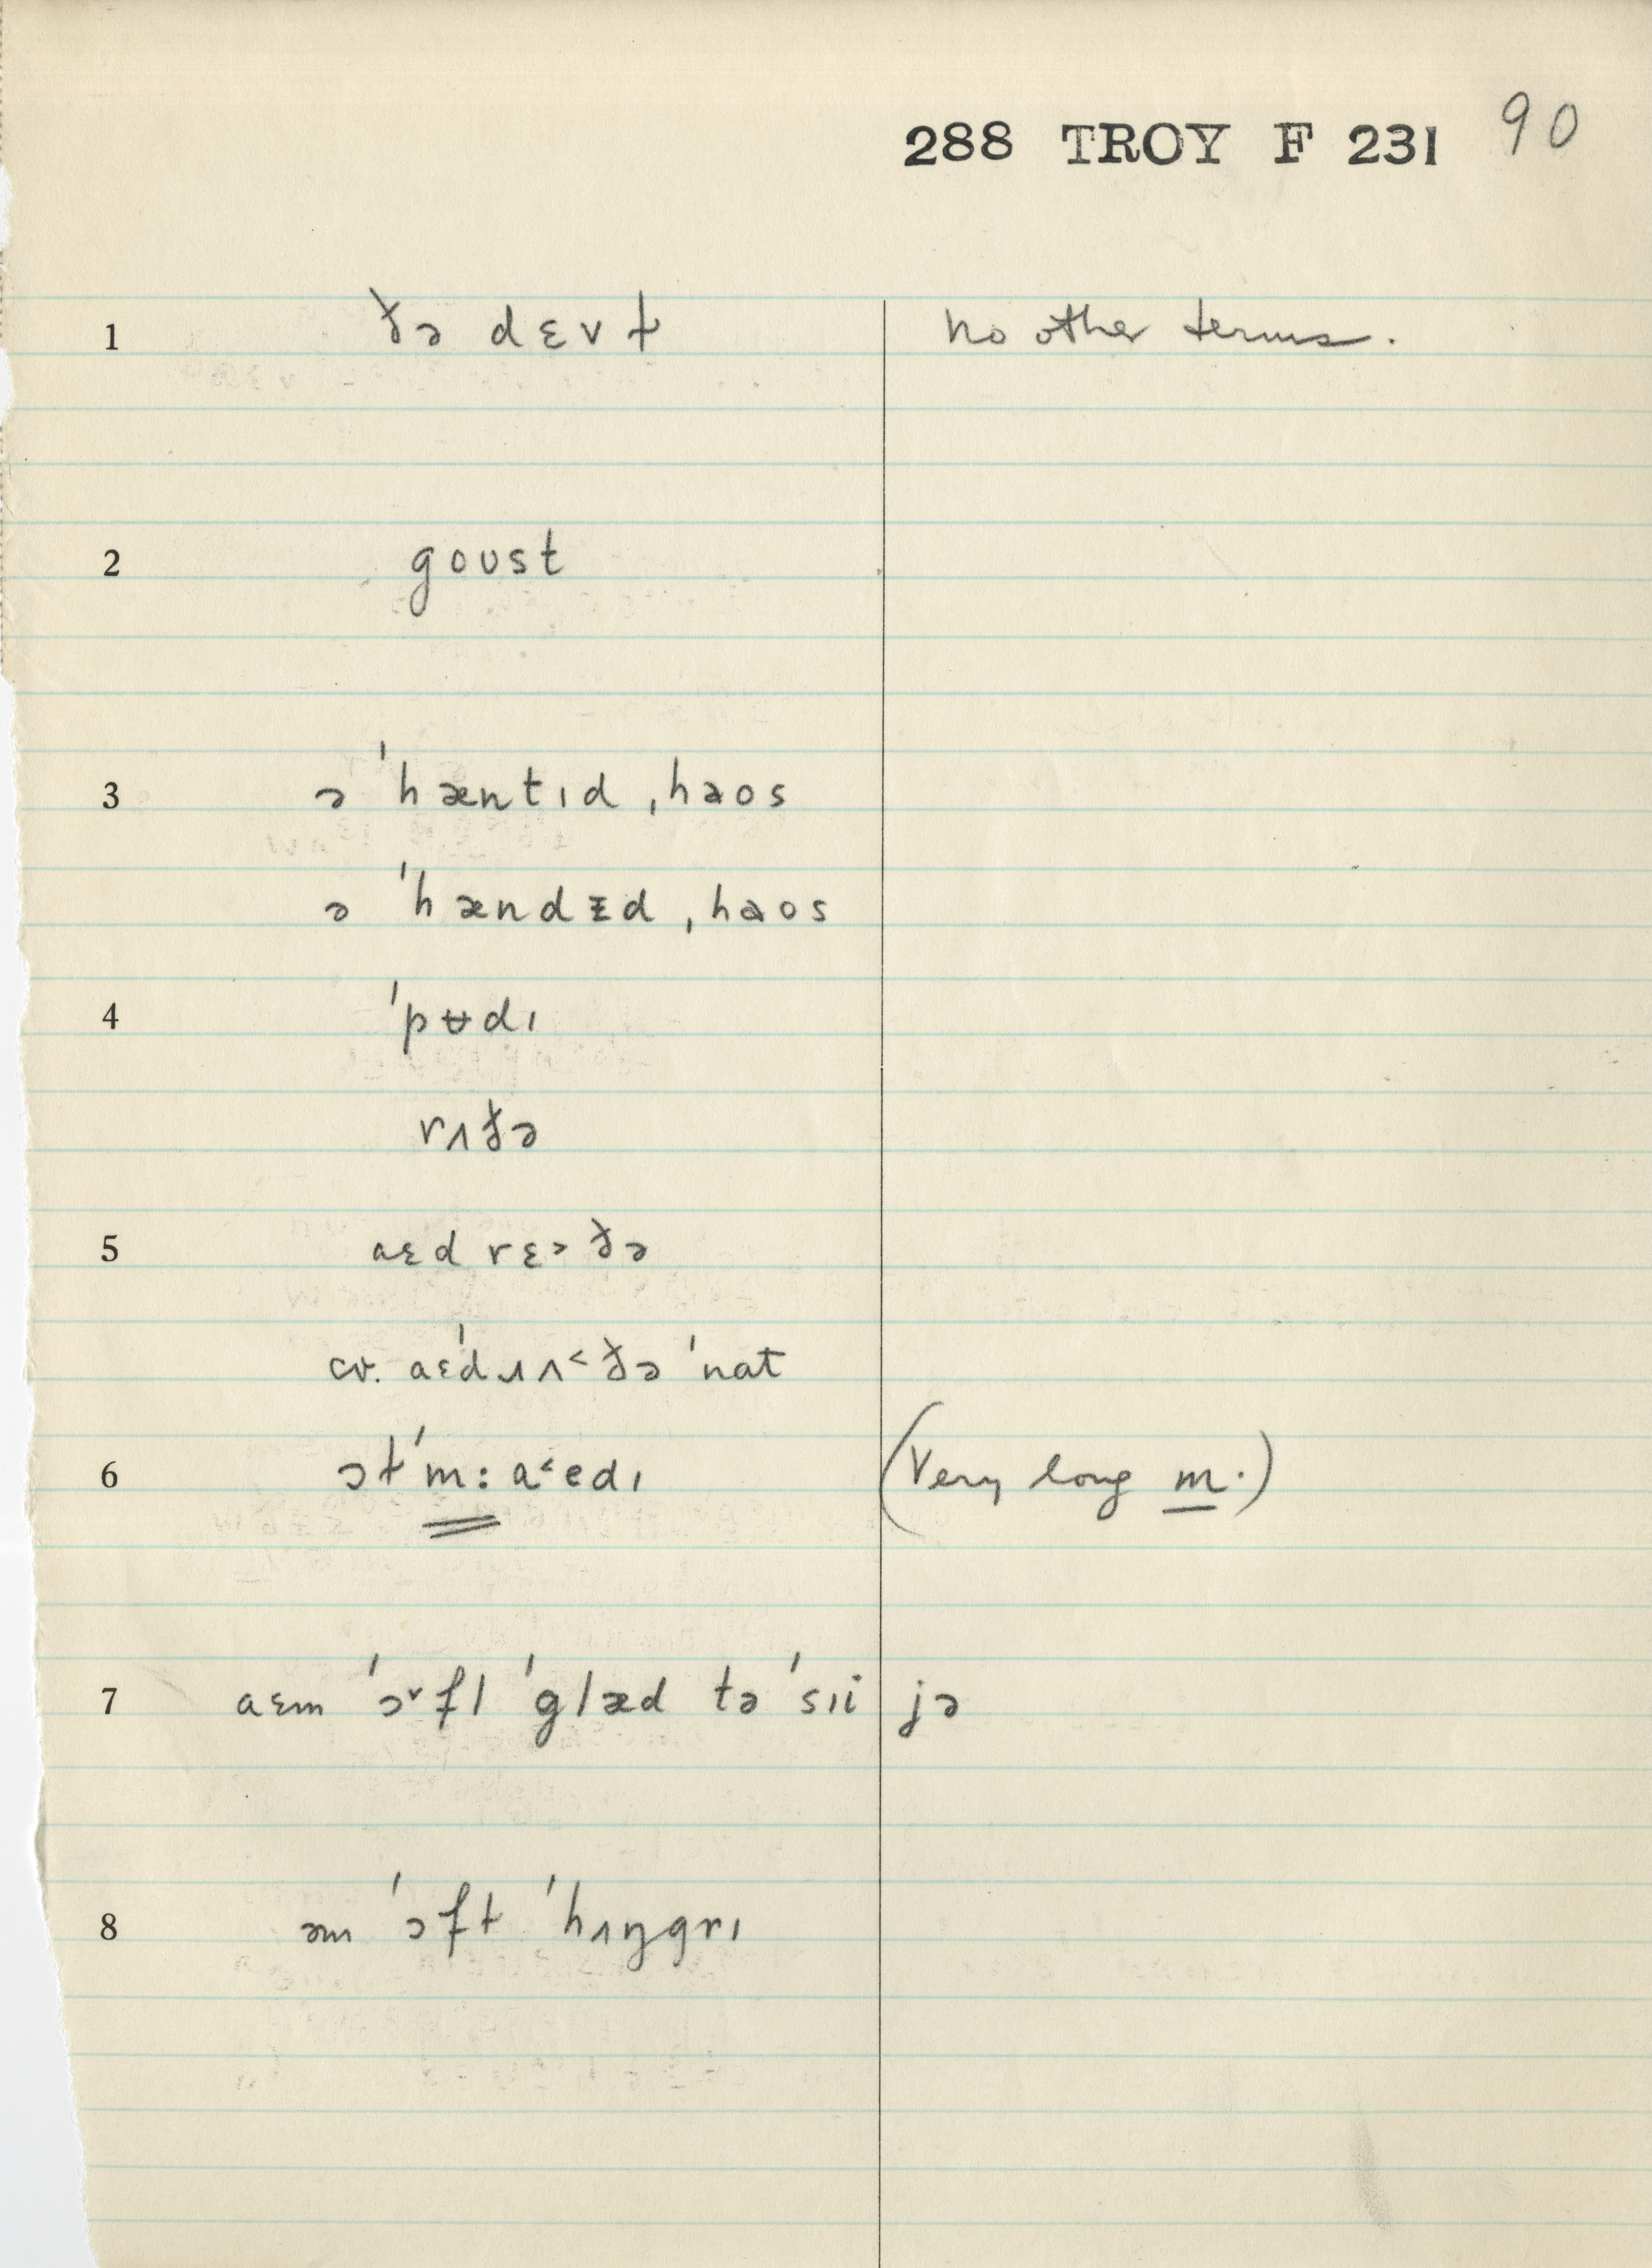 288 TROY F 231 90
1 ðə dɛvɫ no other terms.
2 goʊst
3 ə ˈhæntɪd ˌhaos
ə ˈhændᵻd ˌhaos
4 ˈpʊ̵dɪ
rʌðə
5 aɛd rɛ˃ðə
cv. aɛˈdɹʌ˂ðə ˈnat
6 ɔɫˈm:a˂edɪ (Very long m.)
7 aɛm ˈɔ˅fl ˈglæd tə ˈsɪi jə
8 əm ˈɔfɫ ˈhʌŋgrɪ